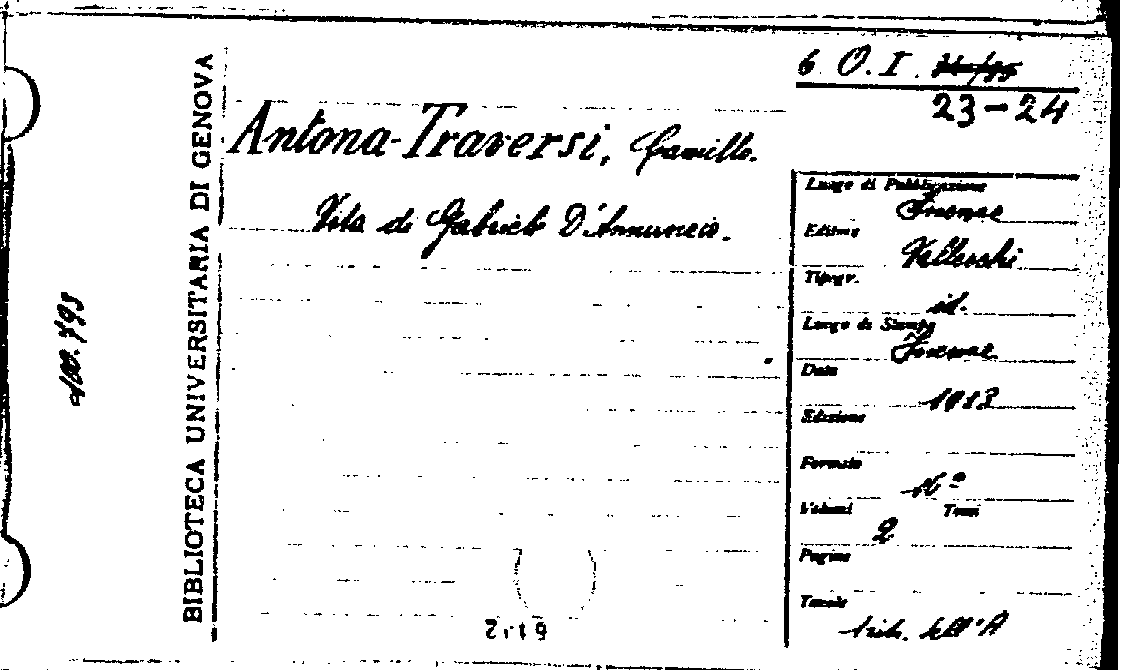 BIBLIOTECA UNIVERSITARIA DI GENOVA
6 O.I.
23-24
Antona-Traversi, Camillo.
Vita di Gabriele D'Annunzio.
Luogo di Pubblicazione
Firenze
Editore
Vallecchi
Tipogr.
id.
Luogo di Stampa
Firenze
Data
Edizione
Formato
16º
Volumi Tomi
2
Pagine
Tavole
dell'A